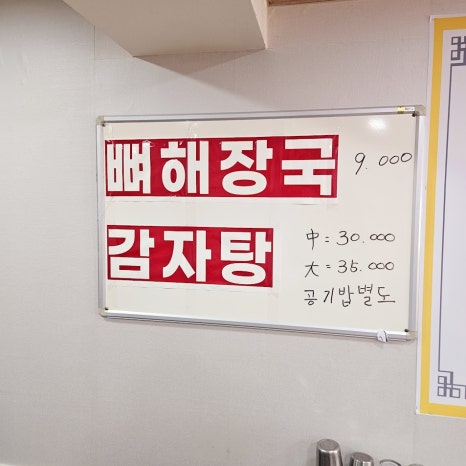 뼈해장국 9.000
감자탕 中 = 30.000
大 = 35.000
공기밥별도